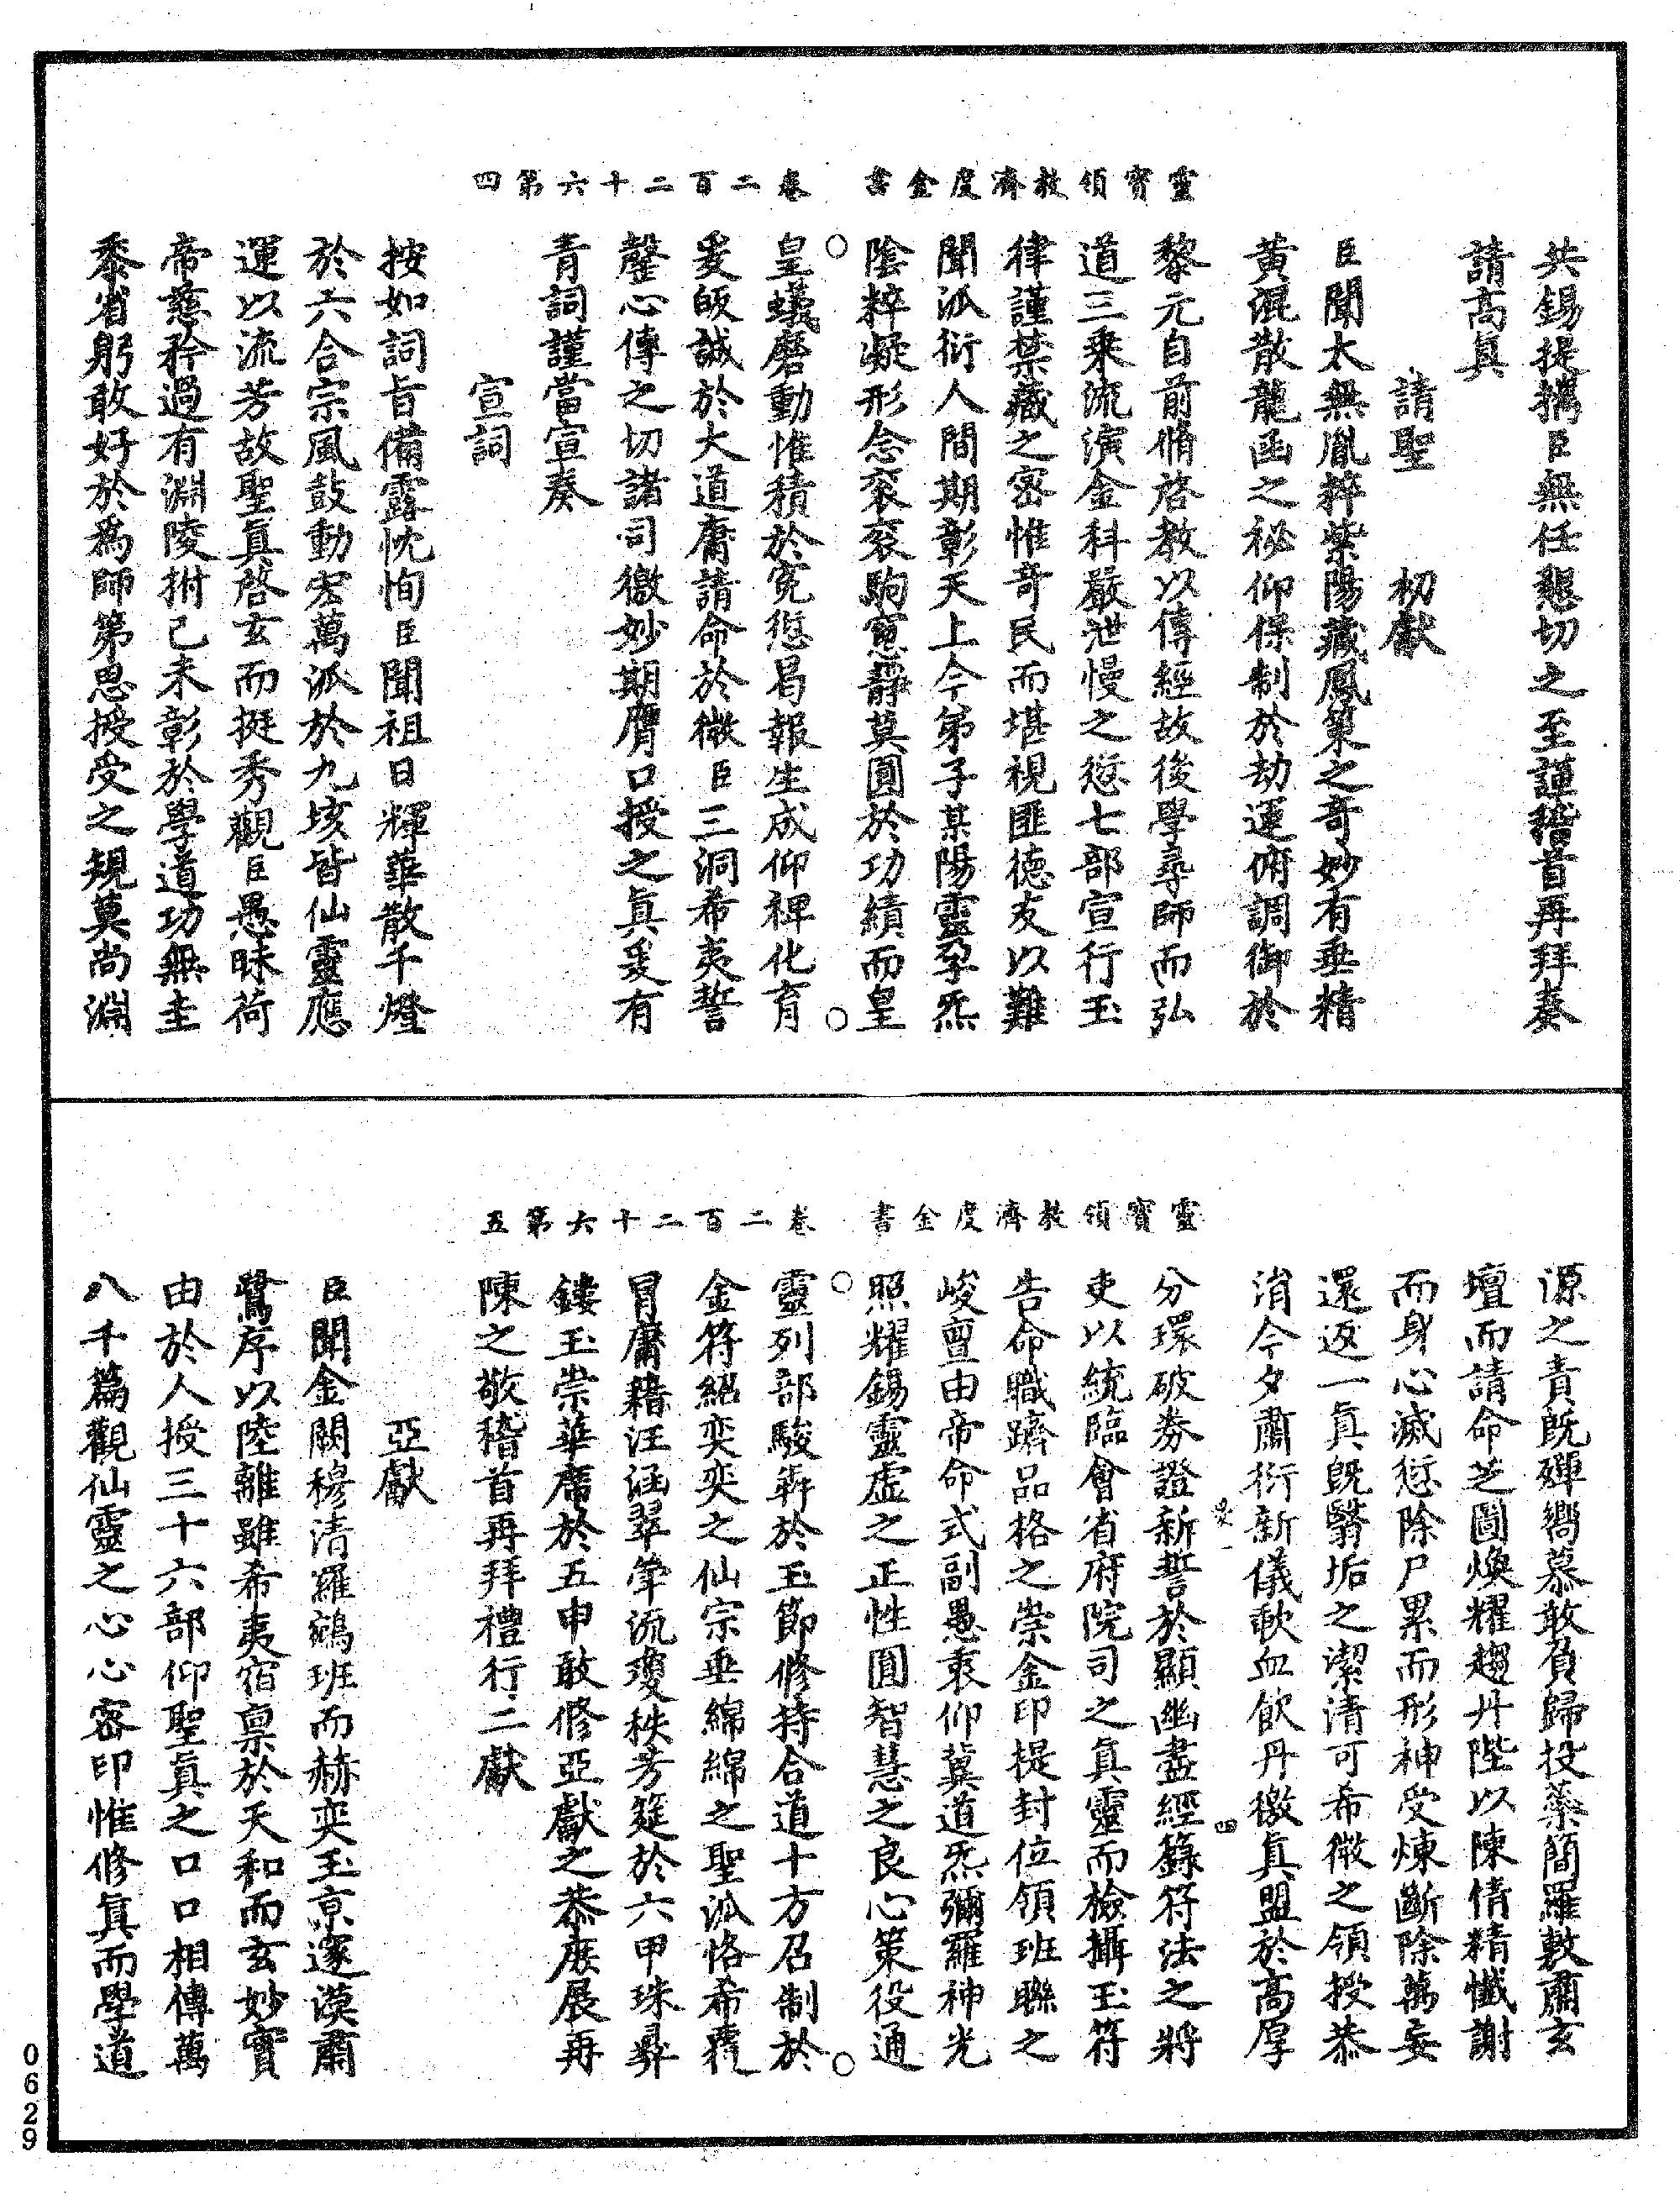 靈寳領教濟度金書 卷二百二十六第四
共錫提攜臣無任懇切之至謹稽首再拜奏
請高真
請聖 初獻
臣聞太無胤粹紫陽藏鳳策之奇妙有垂精
黄混散龍函之秘仰保制於劫運俯調御於
黎元自前脩啓教以傳經故後學尋師而弘
道三乗流演金科嚴泄慢之愆七部宣行玉
律謹禁藏之密惟奇民而堪視匪德友以難
聞泒衍人間期彰天上今弟子某陽靈孕炁
陰粹凝形念衮衮駒窻靜莫圓於功績而皇
皇蟻磨動惟積於寃愆曷報生成仰裨化育
爰皈誠於大道庸請命於微臣三洞希夷誓
罄心傳之切諸司徼妙期膺口授之真爰有
青詞謹當宣奏
宣詞
按如詞旨備露忱恂臣聞祖日輝華散千燈
於六合宗風鼓動宏萬泒於九垓皆仙靈應
運以流芳故聖真啓玄而挺秀觀臣愚昧荷
帝慈矜過有淵陵拊己未彰於學道功無圭
黍省躬敢好於為師第思授受之規莫尚淵
靈寳領教濟度金書 卷二百二十六第五
源之責旣殫嚮慕敢負歸投蘂簡羅敷肅玄
壇而請命芝圖煥耀趨丹陛以陳倩精懺謝
而身心滅愆除尸累而形神受煉斷除萬妄
還返一真旣翳垢之潔清可希微之領授恭
消今夕肅衍新儀歃血飲丹徼真盟於高厚
分環破券證新誓於顯幽盡經籙符法之將
吏以統臨會省府院司之真靈而檢攝玉符
告命職躋品格之崇金印提封位領班聯之
峻亶由帝命式副愚衷仰冀道炁彌羅神光
照耀錫靈虚之正性圓智慧之良心策役通
靈列部駿奔於玉節修持合道十方召制於
金符紹奕奕之仙宗垂綿綿之聖泒恪希覆
冒庸藉汪涵翠斚流瓊秩芳筵於六甲珠彛
鏤玉崇華席於五申敢修亞獻之恭庶展再
陳之敬稽首再拜禮行二獻
亞獻
臣聞金闕穆清羅鵷班而赫奕玉京邃漠肅
鷺序以陸離雖希夷宿禀於天和而玄妙實
由於人授三十六部仰聖真之口口相傳萬
八千篇觀仙靈之心心密印惟修真而學道
0629